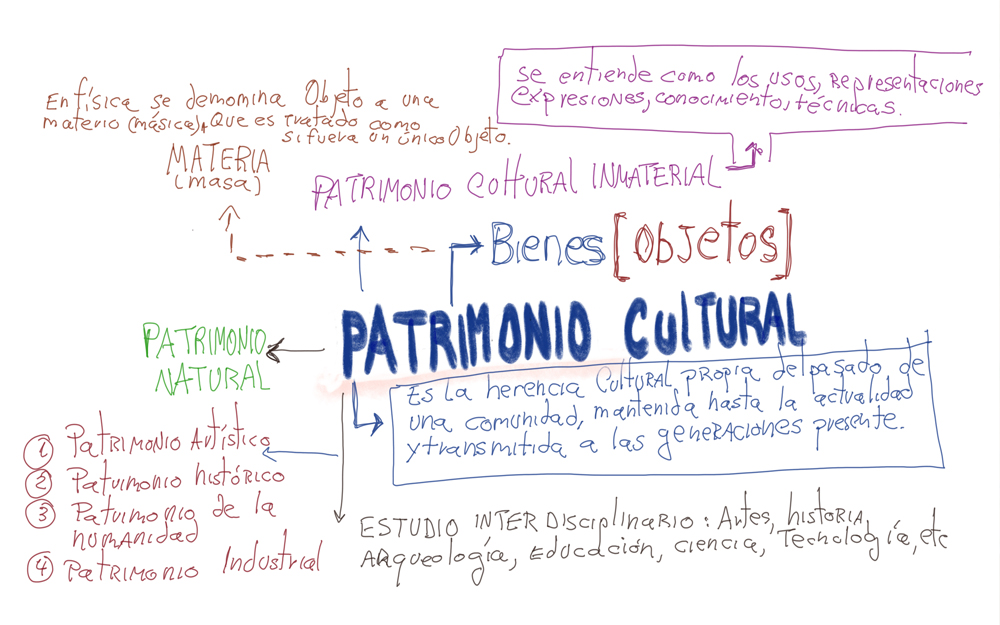 En física se demomina Objeto a una
materio (másica), Que es tratado como
si fuera un único Objeto.
MATERIA
(masa)
se entiende como los usos, Representaciones
expresiones, conocimiento, técnicas.
PATRIMONIO COLTURAL INMATERIAL
Bienes [OBJetos]
PATRIMONIO CulTURAL
PATRIMONIO
NATURAL
Es la herencia Cultural propia del pasado, de
una comunidad, mantenida hasta la actualidad
y transmitida a las geneRACiones presente.
1 PatRimonio Artístico
2 Patuimonio histórico
3 Patuimonio de la
humanidad
4 PatRimonio Industrial
ESTUDIO INTERDisciplinaRio: Artes, histoRIA,
ARqueología, Educación, ciencia, Tecnología, etc